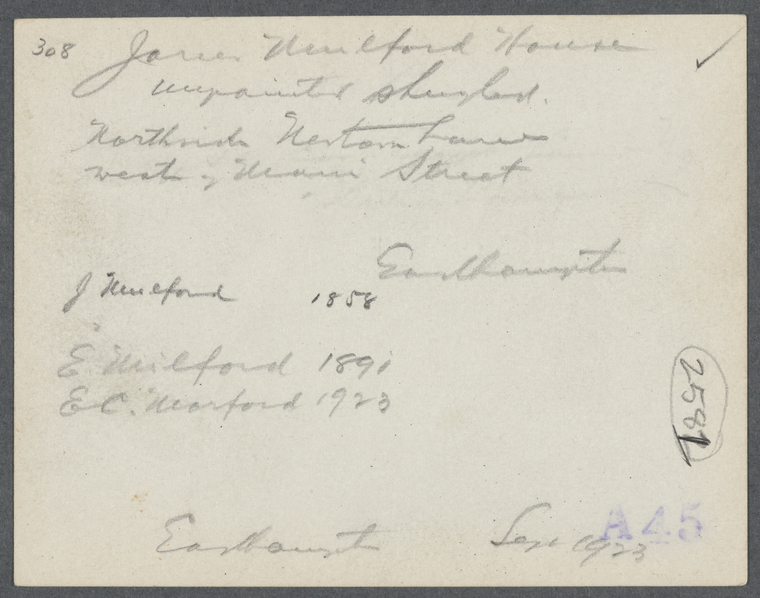 308 James Mulford House
unpainted shingled.
Northside Newtown Lane
west of Main Street
Easthampton
J Mulford 1858
E Mulford 1890
E C. Morford 1923
2581
Easthampton Sep 1923
A45